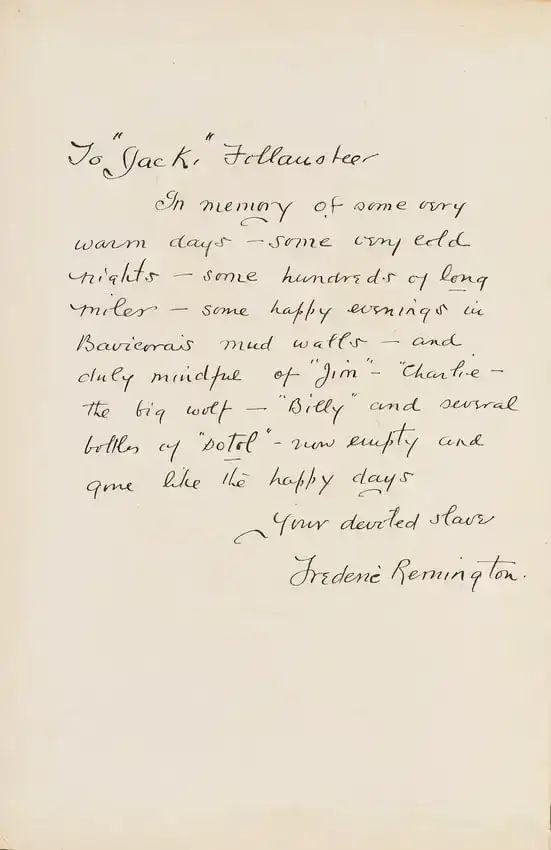 To "Jack." Follansbee
In memory of some very
warm days – some very cold
nights – some hundreds of long
miles – some happy evenings in
Bavicora's mud walls – and
duly mindful of "Jim" – "Charlie –
the big wolf – "Billy" and several
bottles of "Sotol" – now empty and
gone like the happy days
Your devoted slave
Frederic Remington.